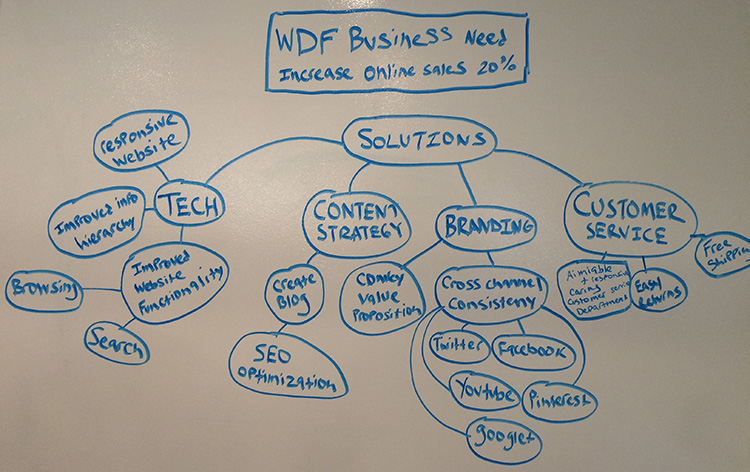 WDF Business Need
Increase Online Sales 20%
SOLUTIONS
responsive
website
TECH
Improved info
hierarchy
Improved
Website
Functionality
Browsing
Search
CONTENT
STRATEGY
Create
Blog
SEO
Optimization
BRANDING
Convey
Value
Proposition
Cross channel
Consisteny
Twitter
Facebook
Youtube
Pinterest
google+
CUSTOMER
SERVICE
Aimiable
+ responsive
Caring
Customer servic
Department
Easy
Returns
Free
Shippin